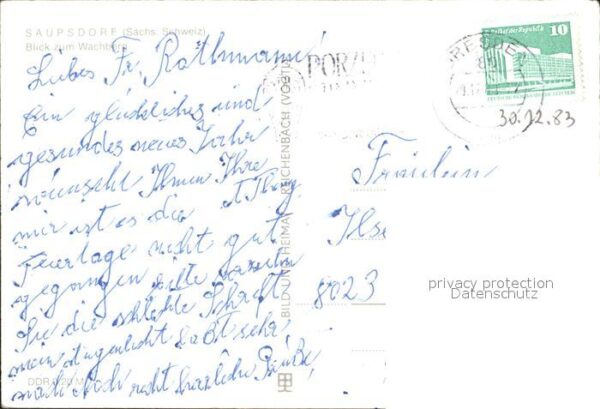 SAUPSDORF (Sächs. Schweiz)
Blick zum Wachberg
Liebes Fr. Rothmann!
Ein glückliches und
gesundes neues Jahr
wünscht Ihnen Ihre
mir ist es die
Feiertage nicht gut
gegangen bitte
Sie die schlechte Schrift
mein Augenlicht läßt sehr
nach noch recht herzliche Grüße,
DDR
BILD UND HEIMAT REICHENBACH (VOGTL
POR
DRESDEN
10
30.12.83
Fräulein
Ilse
8023
privacy protection
Datenschutz